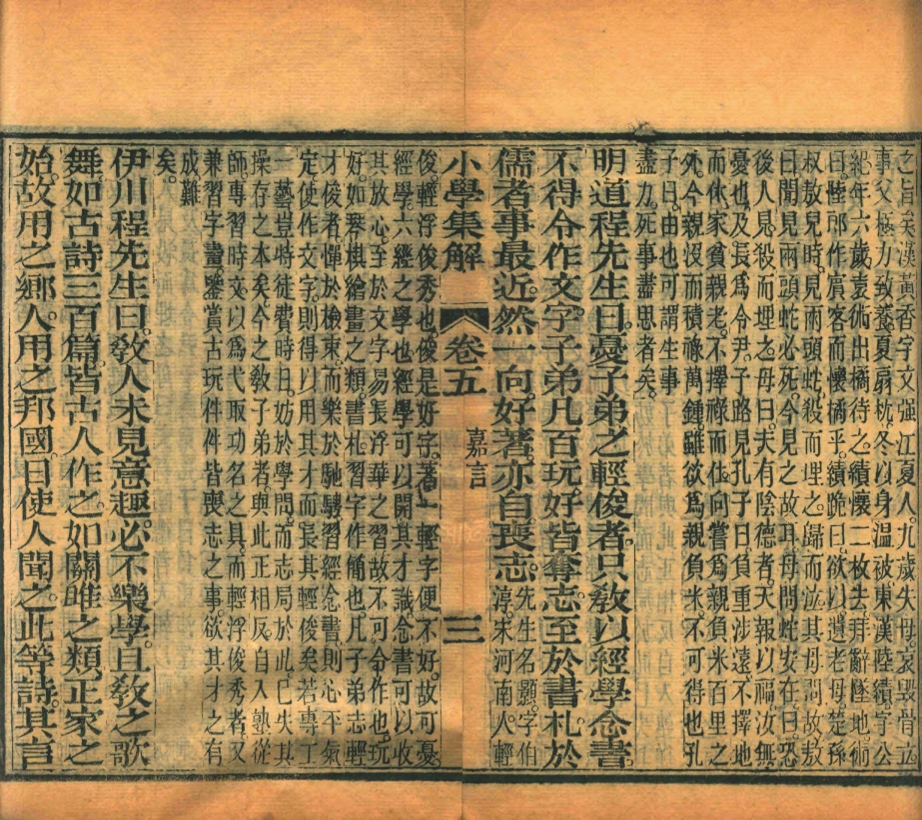 之旨矣漢黃香字文彊江夏人九歲失母哀毀骨立
事父極力致養夏扇枕冬以身溫被東漢陸績字公
紀年六歲袁術出橘待之績懷二枚去拜辭墜地術
曰陸郎作賓客而懷橘乎績跪曰欲以遺老母楚孫
叔敖兒時見兩頭蛇殺而埋之歸而泣其母問故敖
曰聞見兩頭蛇必死今見之故耳母問蛇安在曰恐
後人見殺而埋之母曰夫有陰德者天報以福汝無
憂也及長爲令尹子路見孔子曰負重涉遠不擇地
而休家貧親老不擇祿而仕向嘗爲親負米百里之
外今親沒而積祿萬鍾雖欲爲親負米不可得也孔
子曰由也可謂生事
盡力死事盡思者矣
明道程先生曰憂子弟之輕俊者只敎以經學念書
不得令作文字子弟凡百玩好皆奪志至於書札於
儒者事最近然一向好著亦自喪志先生名顥字伯
淳宋河南人輕
小學集解 卷五 嘉言 三
俊輕浮俊秀也俊是好字著一輕字便不好故可憂
經學六經之學也經學可以開其才識念書可以收
其放心至於文字易長浮華之習故不可令作也玩
好如琴棋繪畫之類書札習字作簡也凡子弟志輕
才俊者憚於檢束而樂於馳騁習經念書則心平氣
定使作文字則得以用其才而長其輕俊矣若專工
一藝豈特徒費時日妨於學問而志局於此已失其
操存之本矣今之敎子弟者與此正相反自入塾從
師專習時文以爲弋取功名之具而輕浮俊秀者又
兼習字畫鑒賞古玩件件皆喪志之事欲其才之有
成難
矣
伊川程先生曰敎人未見意趣必不樂學且敎之歌
舞如古詩三百篇皆古人作之如關雎之類正家之
始故用之鄉人用之邦國日使人聞之此等詩其言